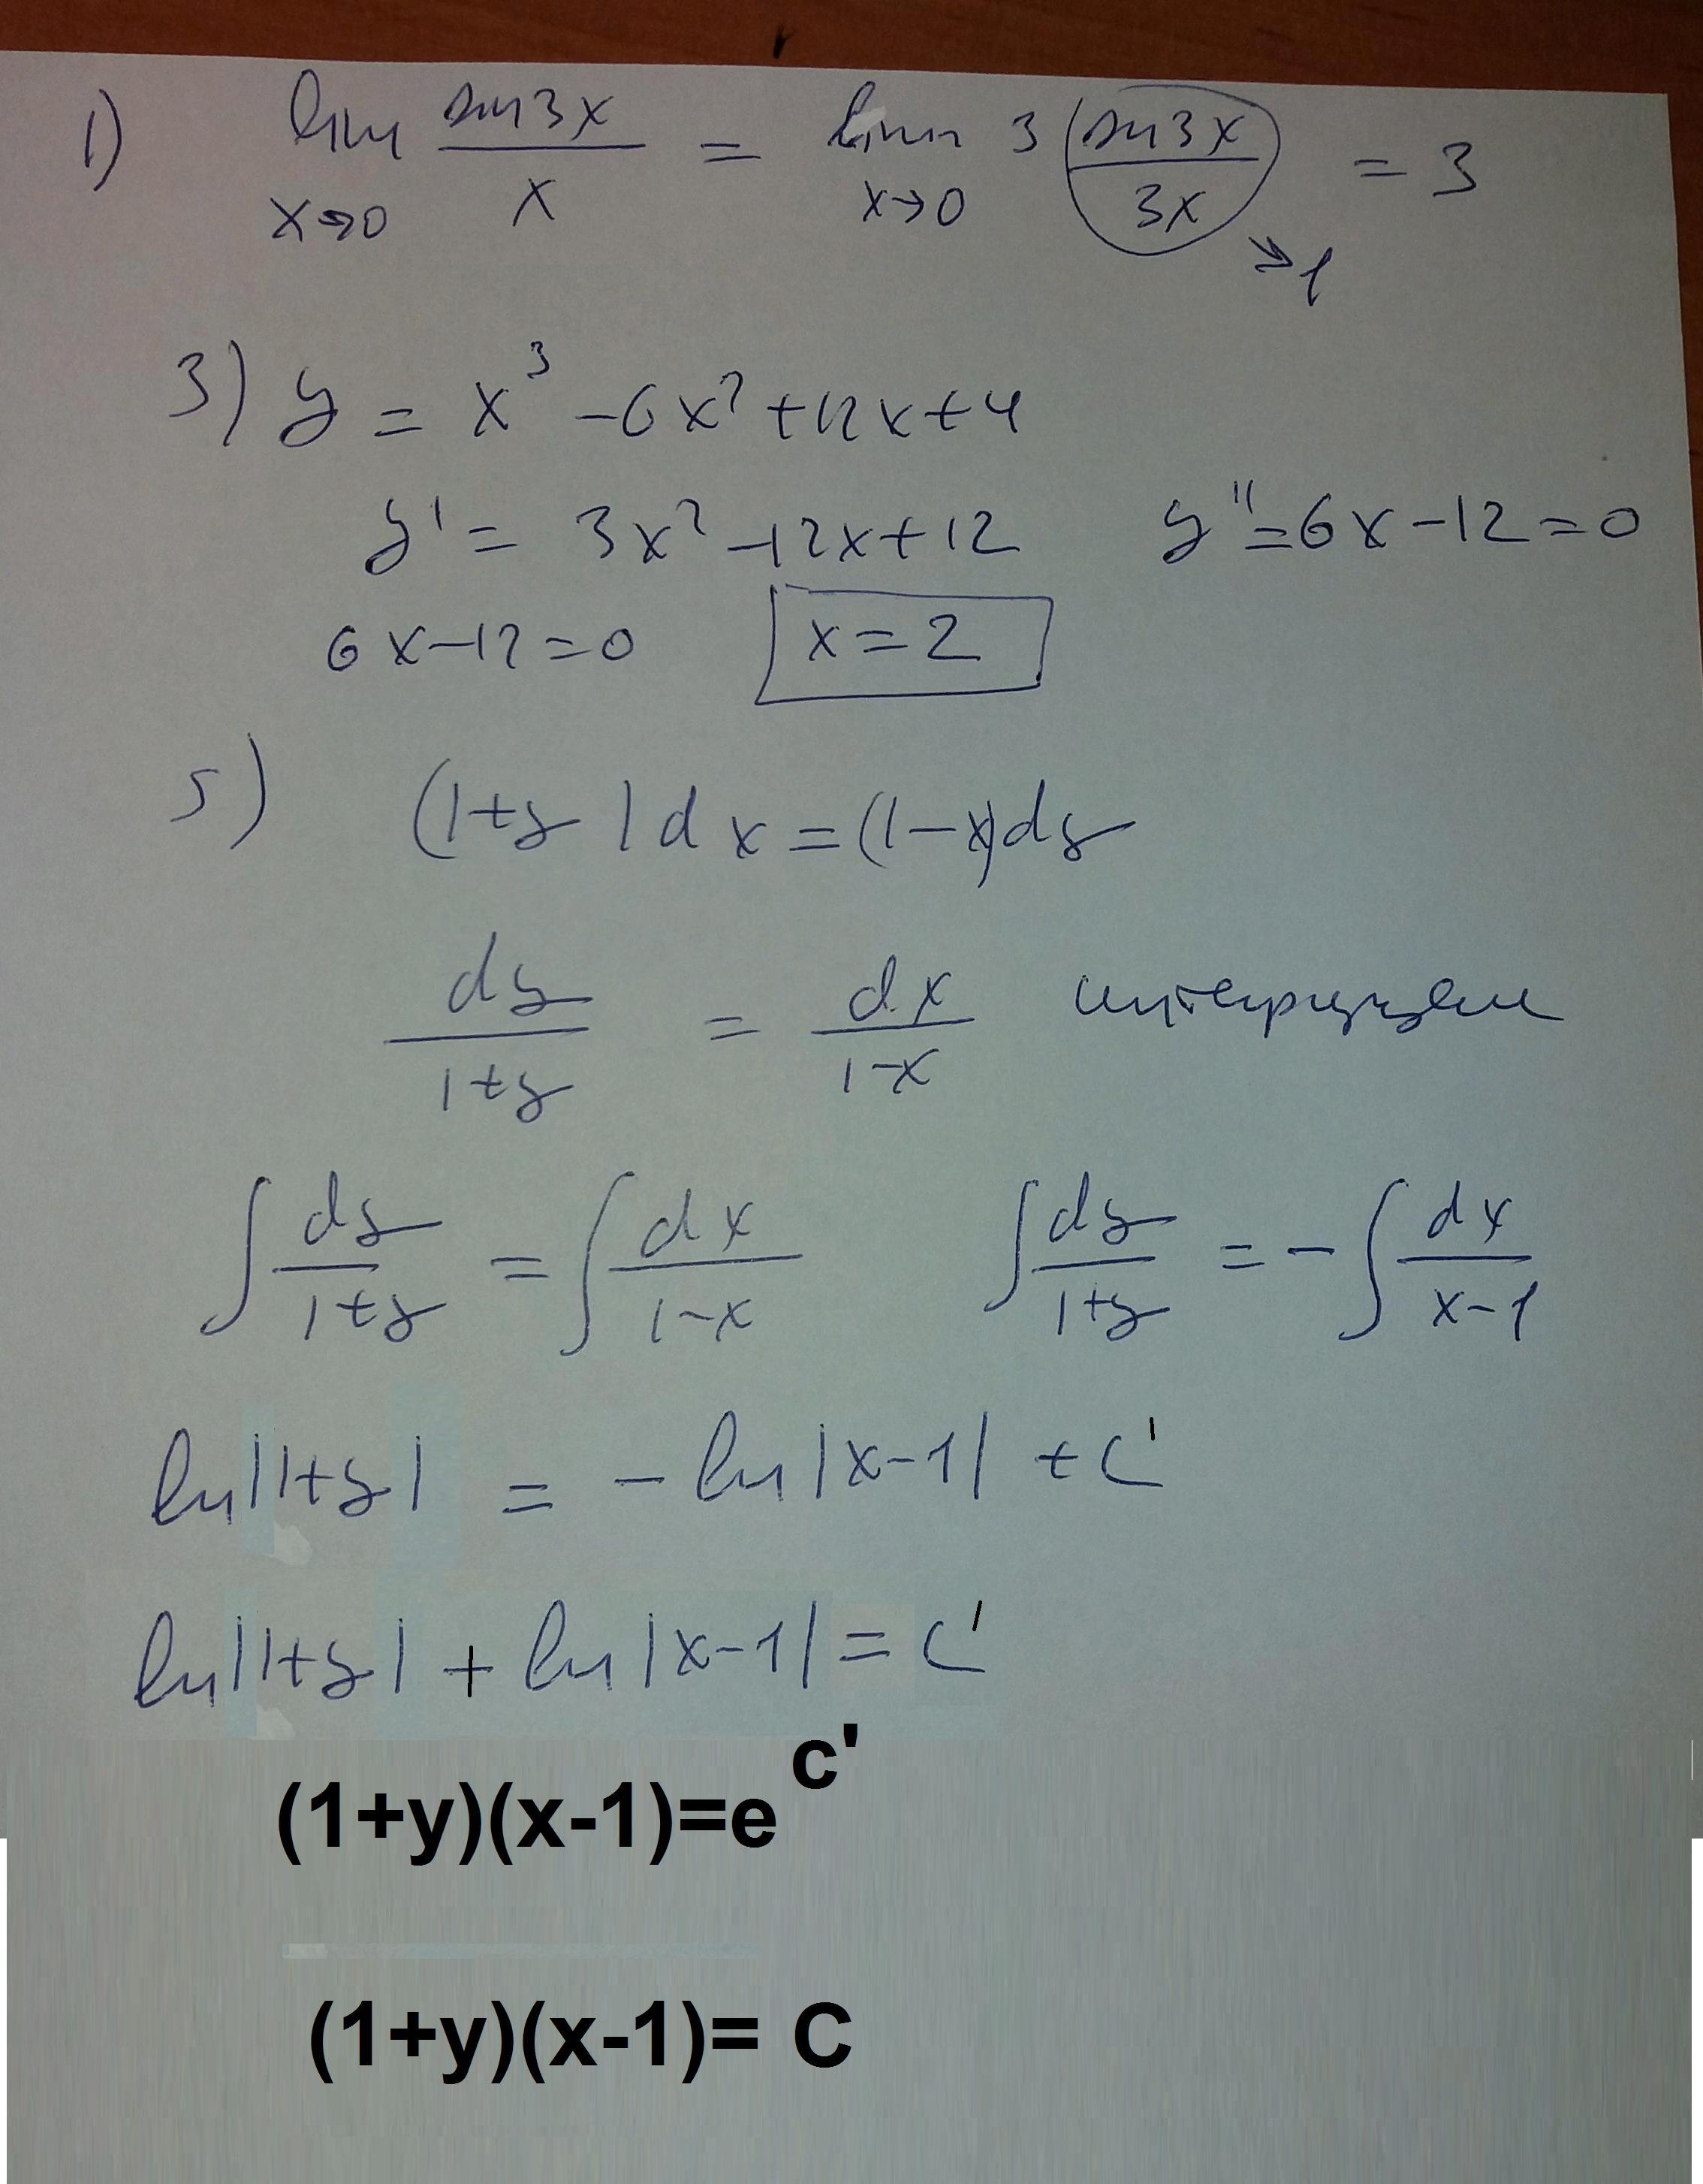 1) lim x→0 sin3x/x = lim x→0 3 (sin3x/3x) →1 = 3
3) y = x³ - 6x² + 12x + 4
y' = 3x² - 12x + 12 y'' = 6x - 12 = 0
6x - 12 = 0 x = 2
5) (1+y)dx = (1-x)dy
dy/1+y = dx/1-x
∫ dy/1+y = ∫ dx/1-x ∫ dy/1+y = - ∫ dx/x-1
ln|1+y| = - ln|x-1| + C'
ln|1+y| + ln|x-1| = C'
(1+y)(x-1)=e^c'
(1+y)(x-1)= C